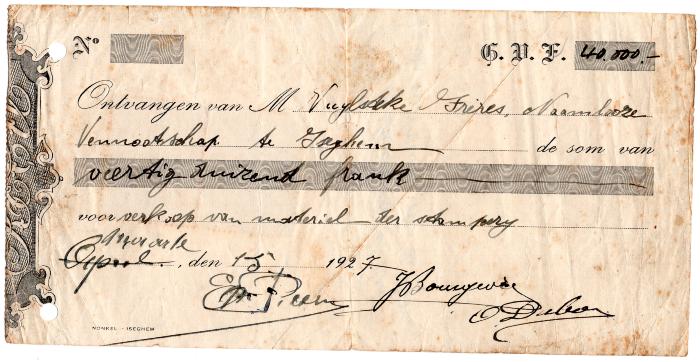 Nº G. V. F. 40.000.-
Ontvangen van M Vuylsteke Frères, Naamloze
Vennootschap te Iseghem de som van
veertig duizend frank
voor verkoop van materiel der stampery
den 15 1927
J Bourgeois
NONKEL - ISEGHEM